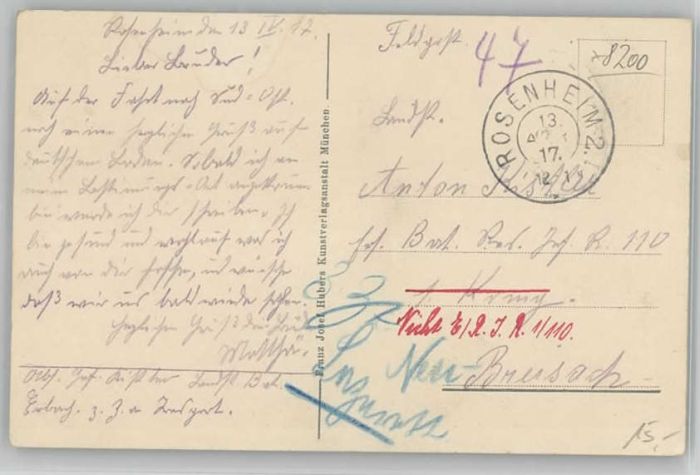 Rosenheim den 13 IV. 17.
Lieber Bruder!
Auf der Fahrt nach Süd-Ost.
noch einen herzlichen Gruß auf
deutschen Boden. Sobald ich an
mein Bestimmungs-Ort angekommen
bin werde ich dir schreiben. Ich
bin gesund und wohlauf was ich
auch von dir hoffe, und wünsche
daß wir uns bald wieder sehen.
Herzlichen Gruß dein Bruder
Landst. Bat.
Erbach. z. Z. a. Transport.
Franz Josef Hubers Kunstverlagsanstalt München.
Feldpost.
47
8200
ROSENHEIM 2.
13.
17.
Landst.
Anton
Ers. Bat. Res. Inf. R. 110
1. Komp.
Nicht E/R. I. R. 1/110.
Neu-
Breisach
z. Z.
Lazarett
15,-